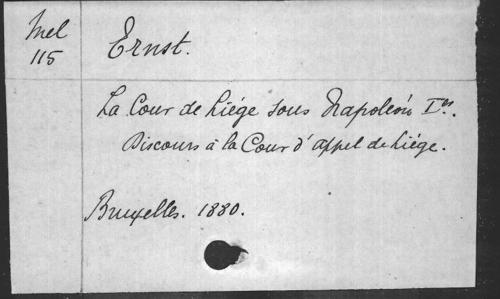 Mel
115
Ernst.
La Cour de Liége sous Napoléon Ier.
Discours à la Cour d'appel de Liége.
Bruxelles. 1880.